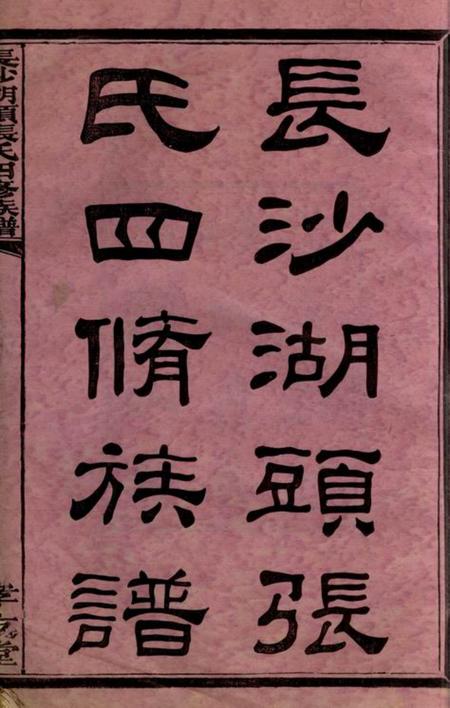 長沙湖頭張
氏四脩族譜
長沙湖頭張氏四修族譜